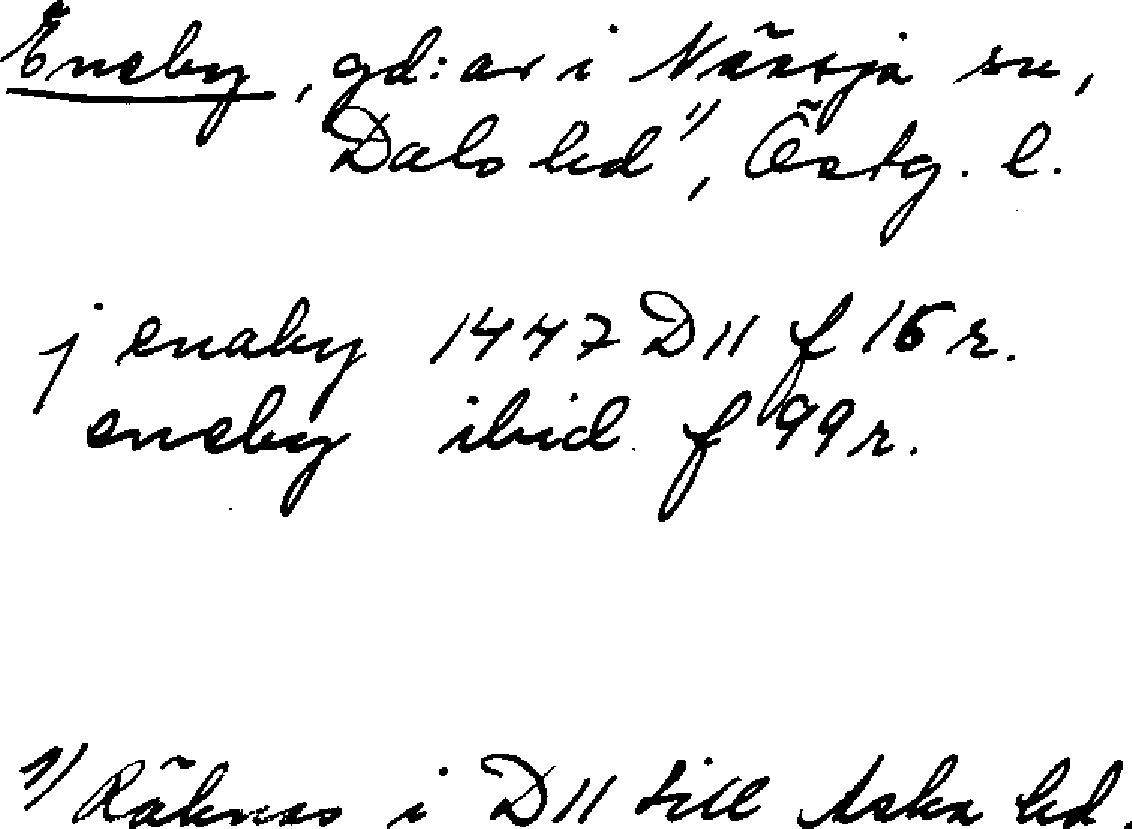 Eneby, gd:ar i Nässja sn,
Dals hd ¹⁾, Östg. l.
j enaby 1447 D11 f 16 r.
eneby ibid. f 99 r.
¹⁾ Räknas i D11 till Aska hd.